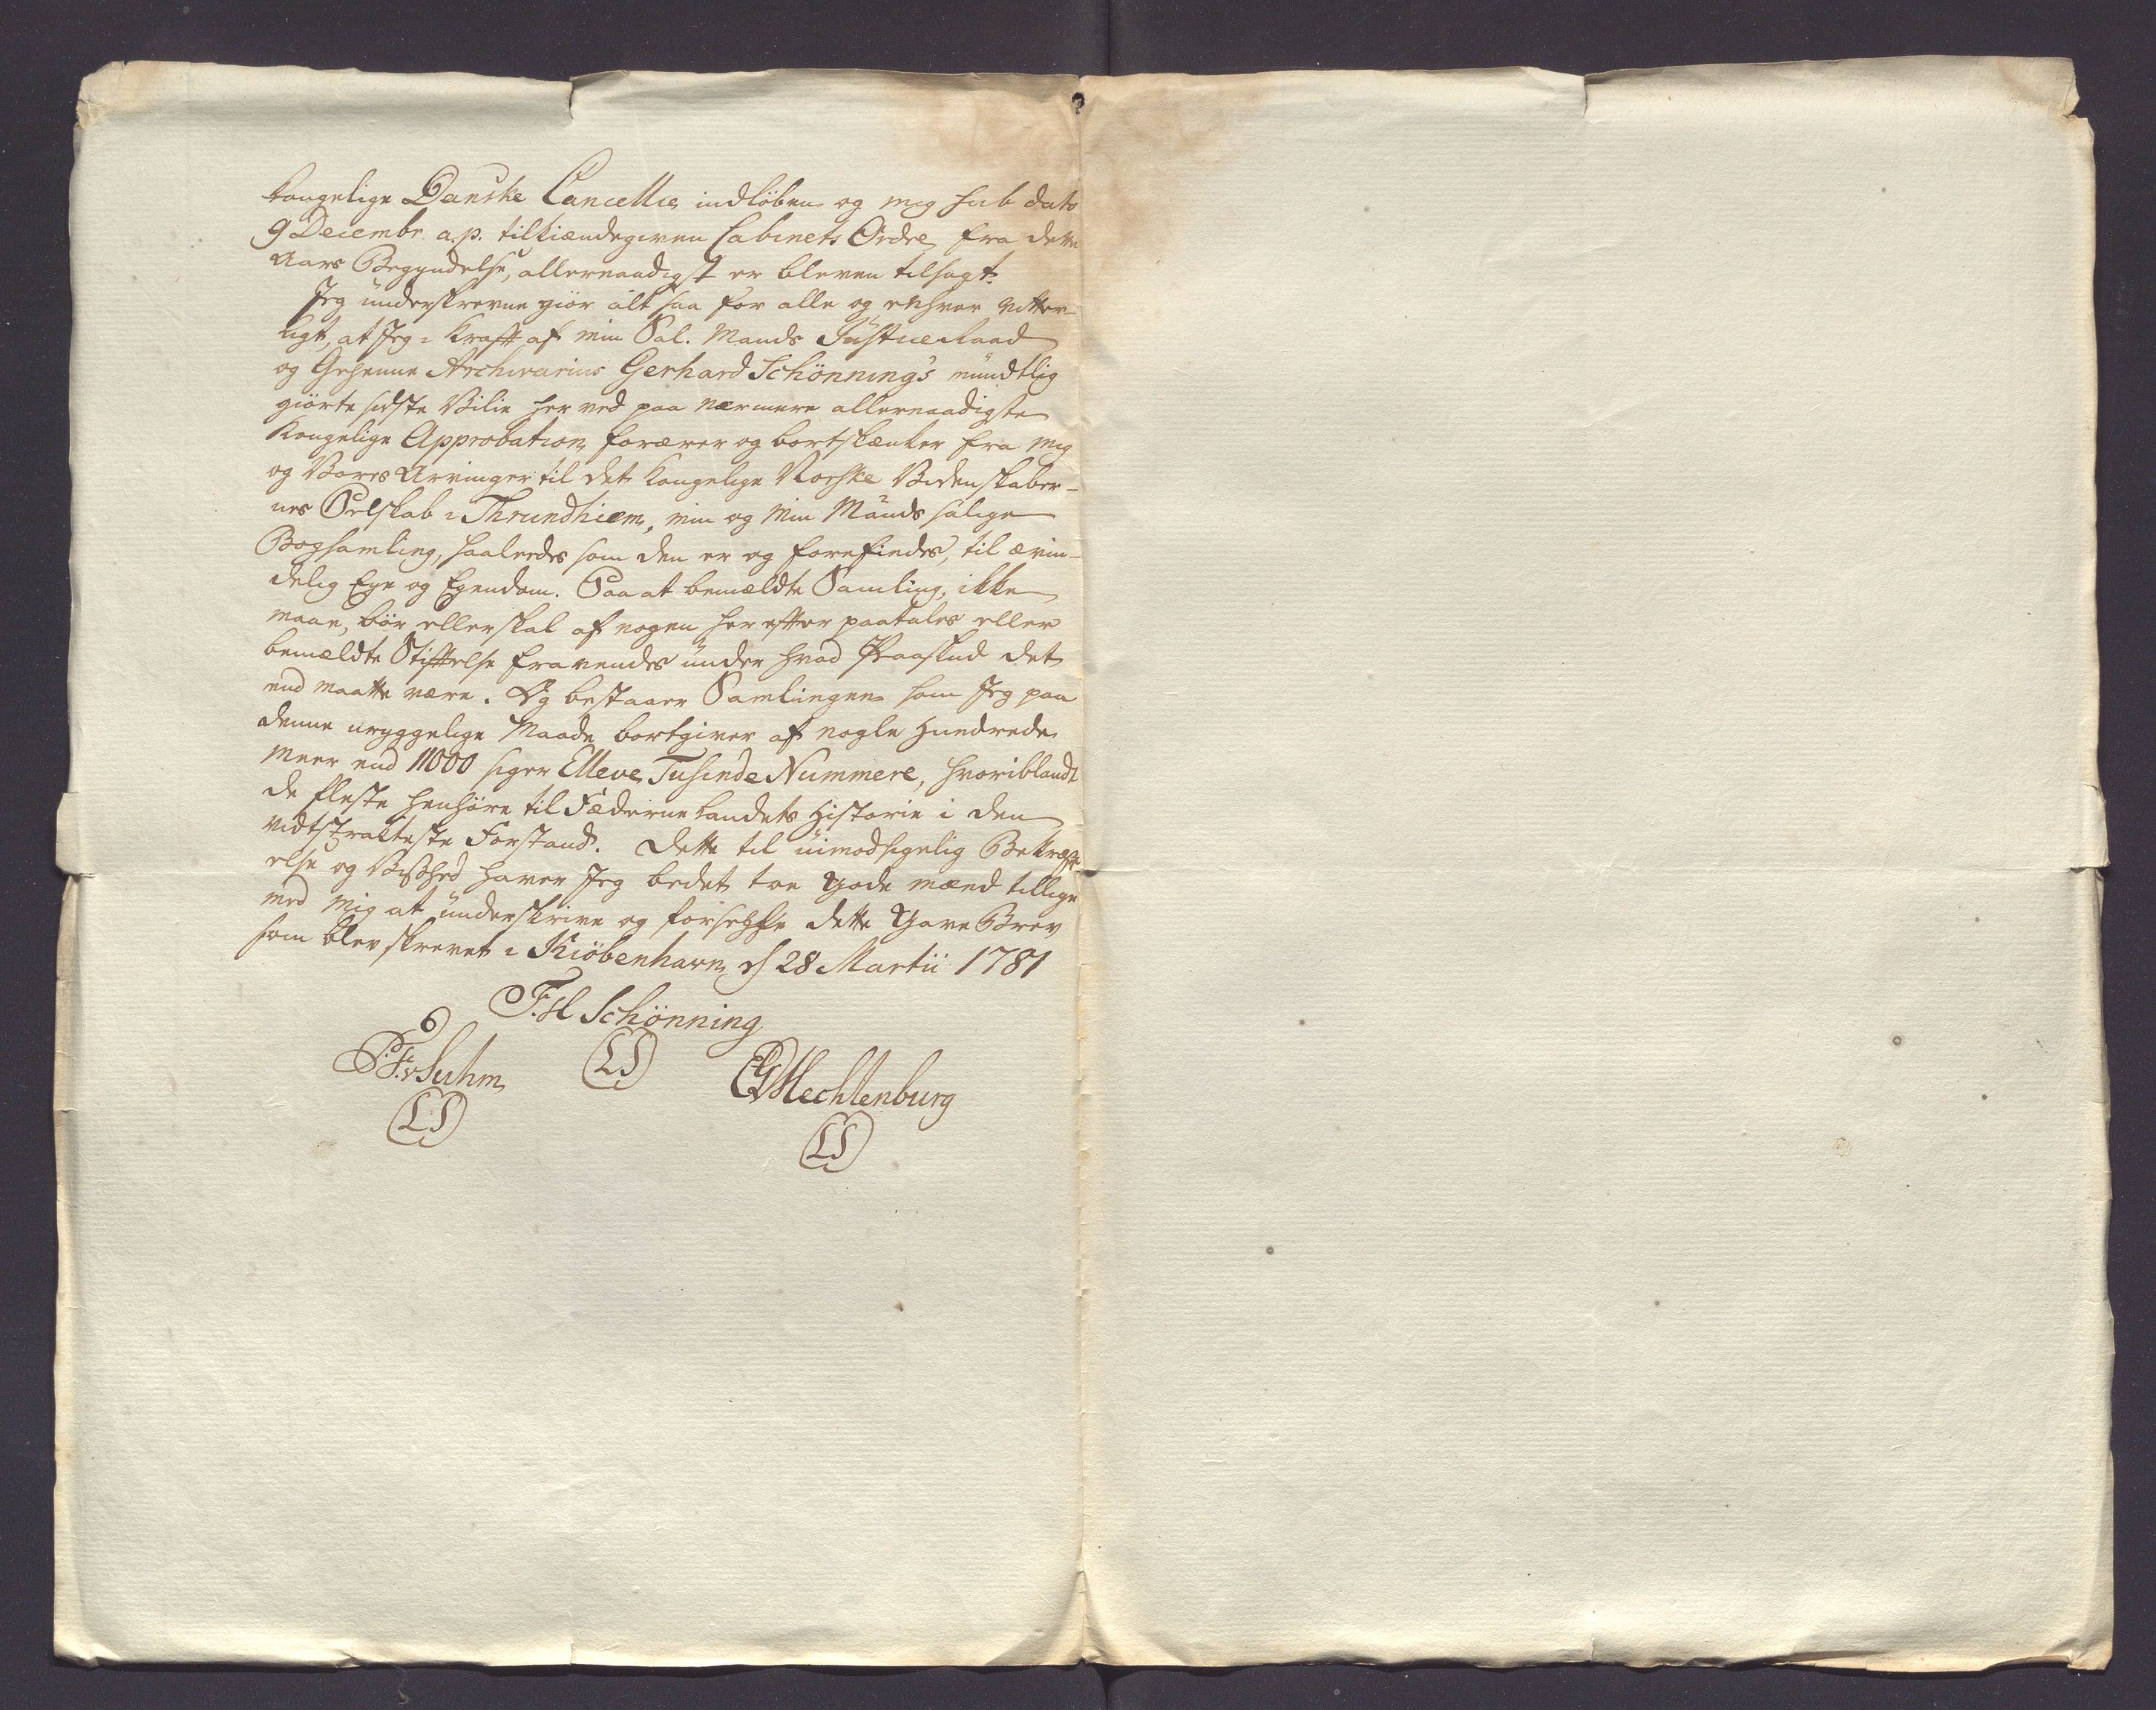 Kongelige Danske Cancellie indløben og mig sub dato
9 Decembr. a.p. tilkiændegiven Cabinets Ordre, fra dette
Aars Begyndelse, allernaadigst er bleven tilsagt.
Jeg underskrevne giør alt saa for alle og enhver vitter-
ligt, at Jeg i Krafft af min Sal. Mands Justice Raad
og Geheime Archivarius Gerhard Schönning's mundtlig
giorte sidste Vilie her ved paa nærmere allernaadigste
Kongelige Approbation forærer og bortskænker fra mig
og Vores Arvinger til det Kongelige Norske Videnskaber-
nes Selskab i Thrundhiem, min og Min Mands salige
Bogsamling, saaledes som den er og forefindes, til ævin-
delig Eye og Eyendom. Saa at bemældte Samling, ikke
maae, bør eller skal af nogen her efter paatales eller
bemældte Stifftelse fravendes under hvad Paaskud det
end maatte være. Og bestaaer Samlingen som Jeg paa
denne uryggelige Maade bortgiver af nogle Hundrede
Meer end 11000 siger Elleve Tusinde Nummere, hvoriblandt
de fleste henhøre til Fæderne Landets Historie i den
vidtstrakteste Forstand. Dette til uimodsigelig Bekræft-
else og Vished haver Jeg bedet toe gode mænd tillige
med Mig at underskrive og forseyle dette Gave Brev
som blev skrevet i Kiöbenhavn d 28 Martii 1781
F. sl Schönning
P.F.v Suhm (LS) CGMechlenburg
(LS) (LS)